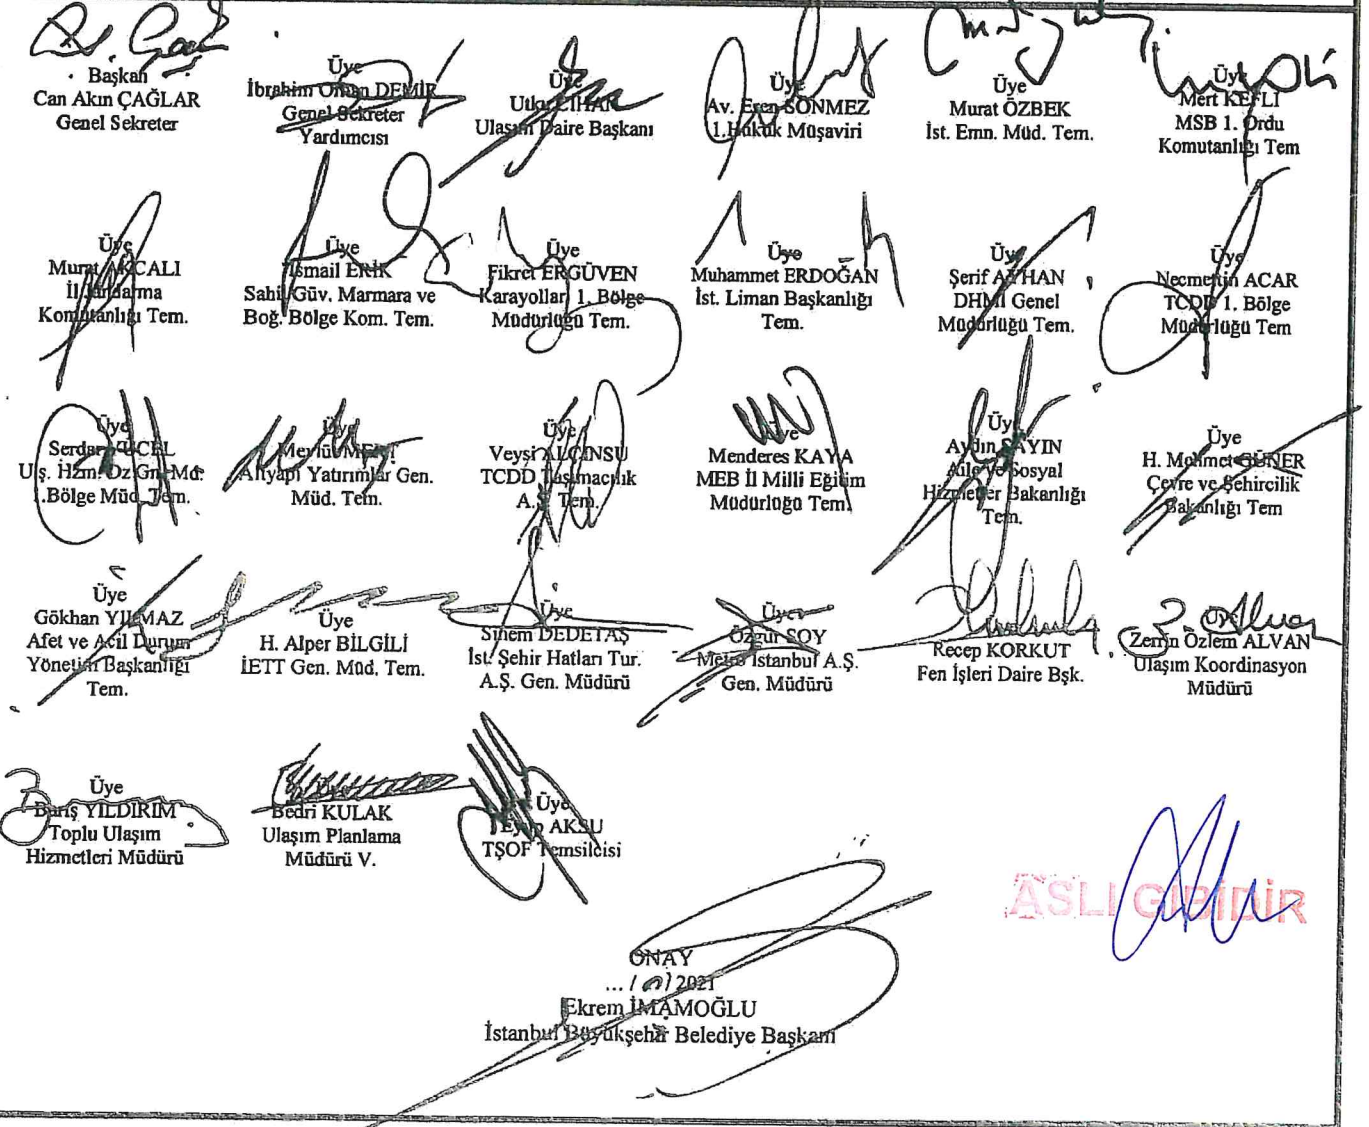 Başkan
Can Akın ÇAĞLAR
Genel Sekreter
Üye
İbrahim Orhan DEMİR
Genel Sekreter
Yardımcısı
Üye
Utku CİHAN
Ulaşım Daire Başkanı
Üye
Av. Eren SÖNMEZ
1.Hukuk Müşaviri
Üye
Murat ÖZBEK
İst. Emn. Müd. Tem.
Üye
Mert KEFLİ
MSB 1. Ordu
Komutanlığı Tem
Üye
Murat AKÇALI
İl Jandarma
Komutanlığı Tem.
Üye
İsmail ERİK
Sahil Güv. Marmara ve
Boğ. Bölge Kom. Tem.
Üye
Fikret ERGÜVEN
Karayolları 1. Bölge
Müdürlüğü Tem.
Üye
Muhammet ERDOĞAN
İst. Liman Başkanlığı
Tem.
Üye
Şerif AYHAN
DHMİ Genel
Müdürlüğü Tem.
Üye
Necmettin ACAR
TCDD 1. Bölge
Müdürlüğü Tem
Üye
Serdar YÜCEL
Ulş. Hzm. Dz Gn. Md.
1.Bölge Müd. Tem.
Üye
Mevlüt MERT
Altyapı Yatırımlar Gen.
Müd. Tem.
Üye
Veysi ALÇINSU
TCDD Taşımacılık
A.Ş Tem.
Üye
Menderes KAYA
MEB İl Milli Eğitim
Müdürlüğü Tem.
Üye
Aydın SAYIN
Aile ve Sosyal
Hizmetler Bakanlığı
Tem.
Üye
H. Mehmet GÜNER
Çevre ve Şehircilik
Bakanlığı Tem
Üye
Gökhan YILMAZ
Afet ve Acil Durum
Yönetim Başkanlığı
Tem.
Üye
H. Alper BİLGİLİ
İETT Gen. Müd. Tem.
Üye
Sinem DEDETAŞ
İst. Şehir Hatları Tur.
A.Ş. Gen. Müdürü
Üye
Özgür SOY
Metro İstanbul A.Ş.
Gen. Müdürü
Recep KORKUT
Fen İşleri Daire Bşk.
Üye
Zerrin Özlem ALVAN
Ulaşım Koordinasyon
Müdürü
Üye
Barış YILDIRIM
Toplu Ulaşım
Hizmetleri Müdürü
Bedri KULAK
Ulaşım Planlama
Müdürü V.
Üye
Eyüp AKSU
TŞOF Temsilcisi
ASLI GİBİDİR
ONAY
Ekrem İMAMOĞLU
İstanbul Büyükşehir Belediye Başkanı